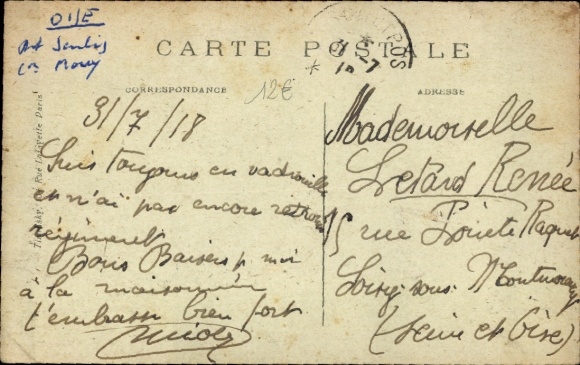 OISE
Art Senlis
CARTE POSTALE
CORRESPONDANCE
ADRESSE
12€
31/7/18
Suis toujours en vadrouille
et n'ai pas encore retrouvé
régiment
Bons Baisers p. moi
à la maisonnée
t'embrasse bien fort
Mademoiselle
Letard Renée
15 rue
Soisy-sous-Montmorency
(Seine et Oise)
Rue Lafayette Paris